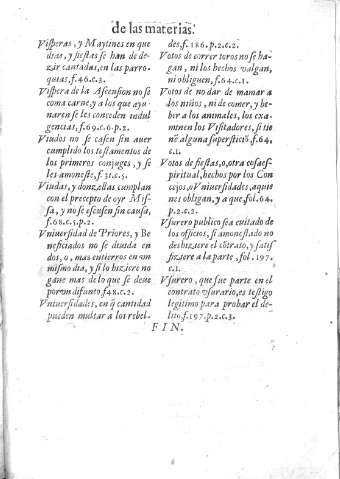 de las materias.
Visperas, y Maytines en que
dias, y fiestas se han de de-
zir cantadas, en las parro-
quias, f.46.c.3.
Vispera de la Ascension no se
coma carne, y a los que ayu-
naren se les conceden indul
gencias, f.69.c.6.p.2.
Viudos no se casen sin auer
cumplido los testamentos de
los primeros conjuges, y se
les amoneste, f.31.c.5.
Viudas, y donzellas cumplan
con el precepto de oyr Mis-
sa, y no se escusen sin causa,
f.68.c.5.p.2.
Vniuersidad de Priores, y Be
neficiados no se diuida en
dos, o, mas entierros en vn
mismo dia, y si lo hiziere no
gane mas de lo que se deue
por vn difunto f.48.c.2.
Vniuersidades, en q̃ cantidad
pueden multar a los rebel-
des, f.186.p.2.c.2.
Votos de correr toros no se ha-
gan, ni los hechos valgan,
ni obliguen, f.64.c.1.
Votos de no dar de mamar a
los niños, ni de comer, y be-
ber a los animales, los exa-
minen los Visitadores, si tie
nẽ alguna supersticiõ, f.64,
c.1.
Votos de fiestas, o, otra cosa es-
piritual, hechos por los Con
cejos, o Vniuersidades, a quie
nes obligan, y a que fol.64.
p.2.c.2.
Vsurero publico sea euitado de
los officios, si amonestado no
deshiziere el cõtrato, y satis
fiziere a la parte, fol.197.
c.1.
Vsurero, que fue parte en el
contrato vsurario, es testigo
legitimo para probar el de-
lito, f.197.p.2.c.3.
FIN.